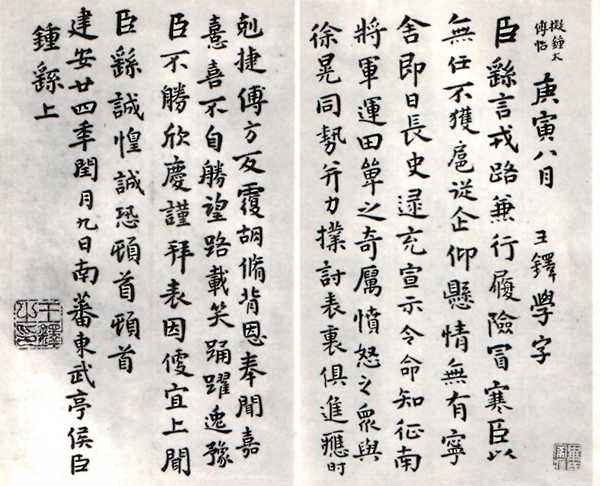 擬鍾太
傅帖
庚寅八月 王鐸學字
臣繇言戎路兼行履險冒寒臣以
無任不獲扈從企仰懸情無有寧
舍即日長史逯充宣示令命知征南
將軍運田單之奇厲憤怒之眾與
徐晃同勢并力撲討表裏俱進應時
剋捷傅方反覆胡脩背恩奉聞嘉
憙喜不自勝望路載笑踊躍逸豫
臣不勝欣慶謹拜表因便宜上聞
臣繇誠惶誠恐頓首頓首
建安廿四年閏月九日南蕃東武亭侯臣
鍾繇上
王鐸之印